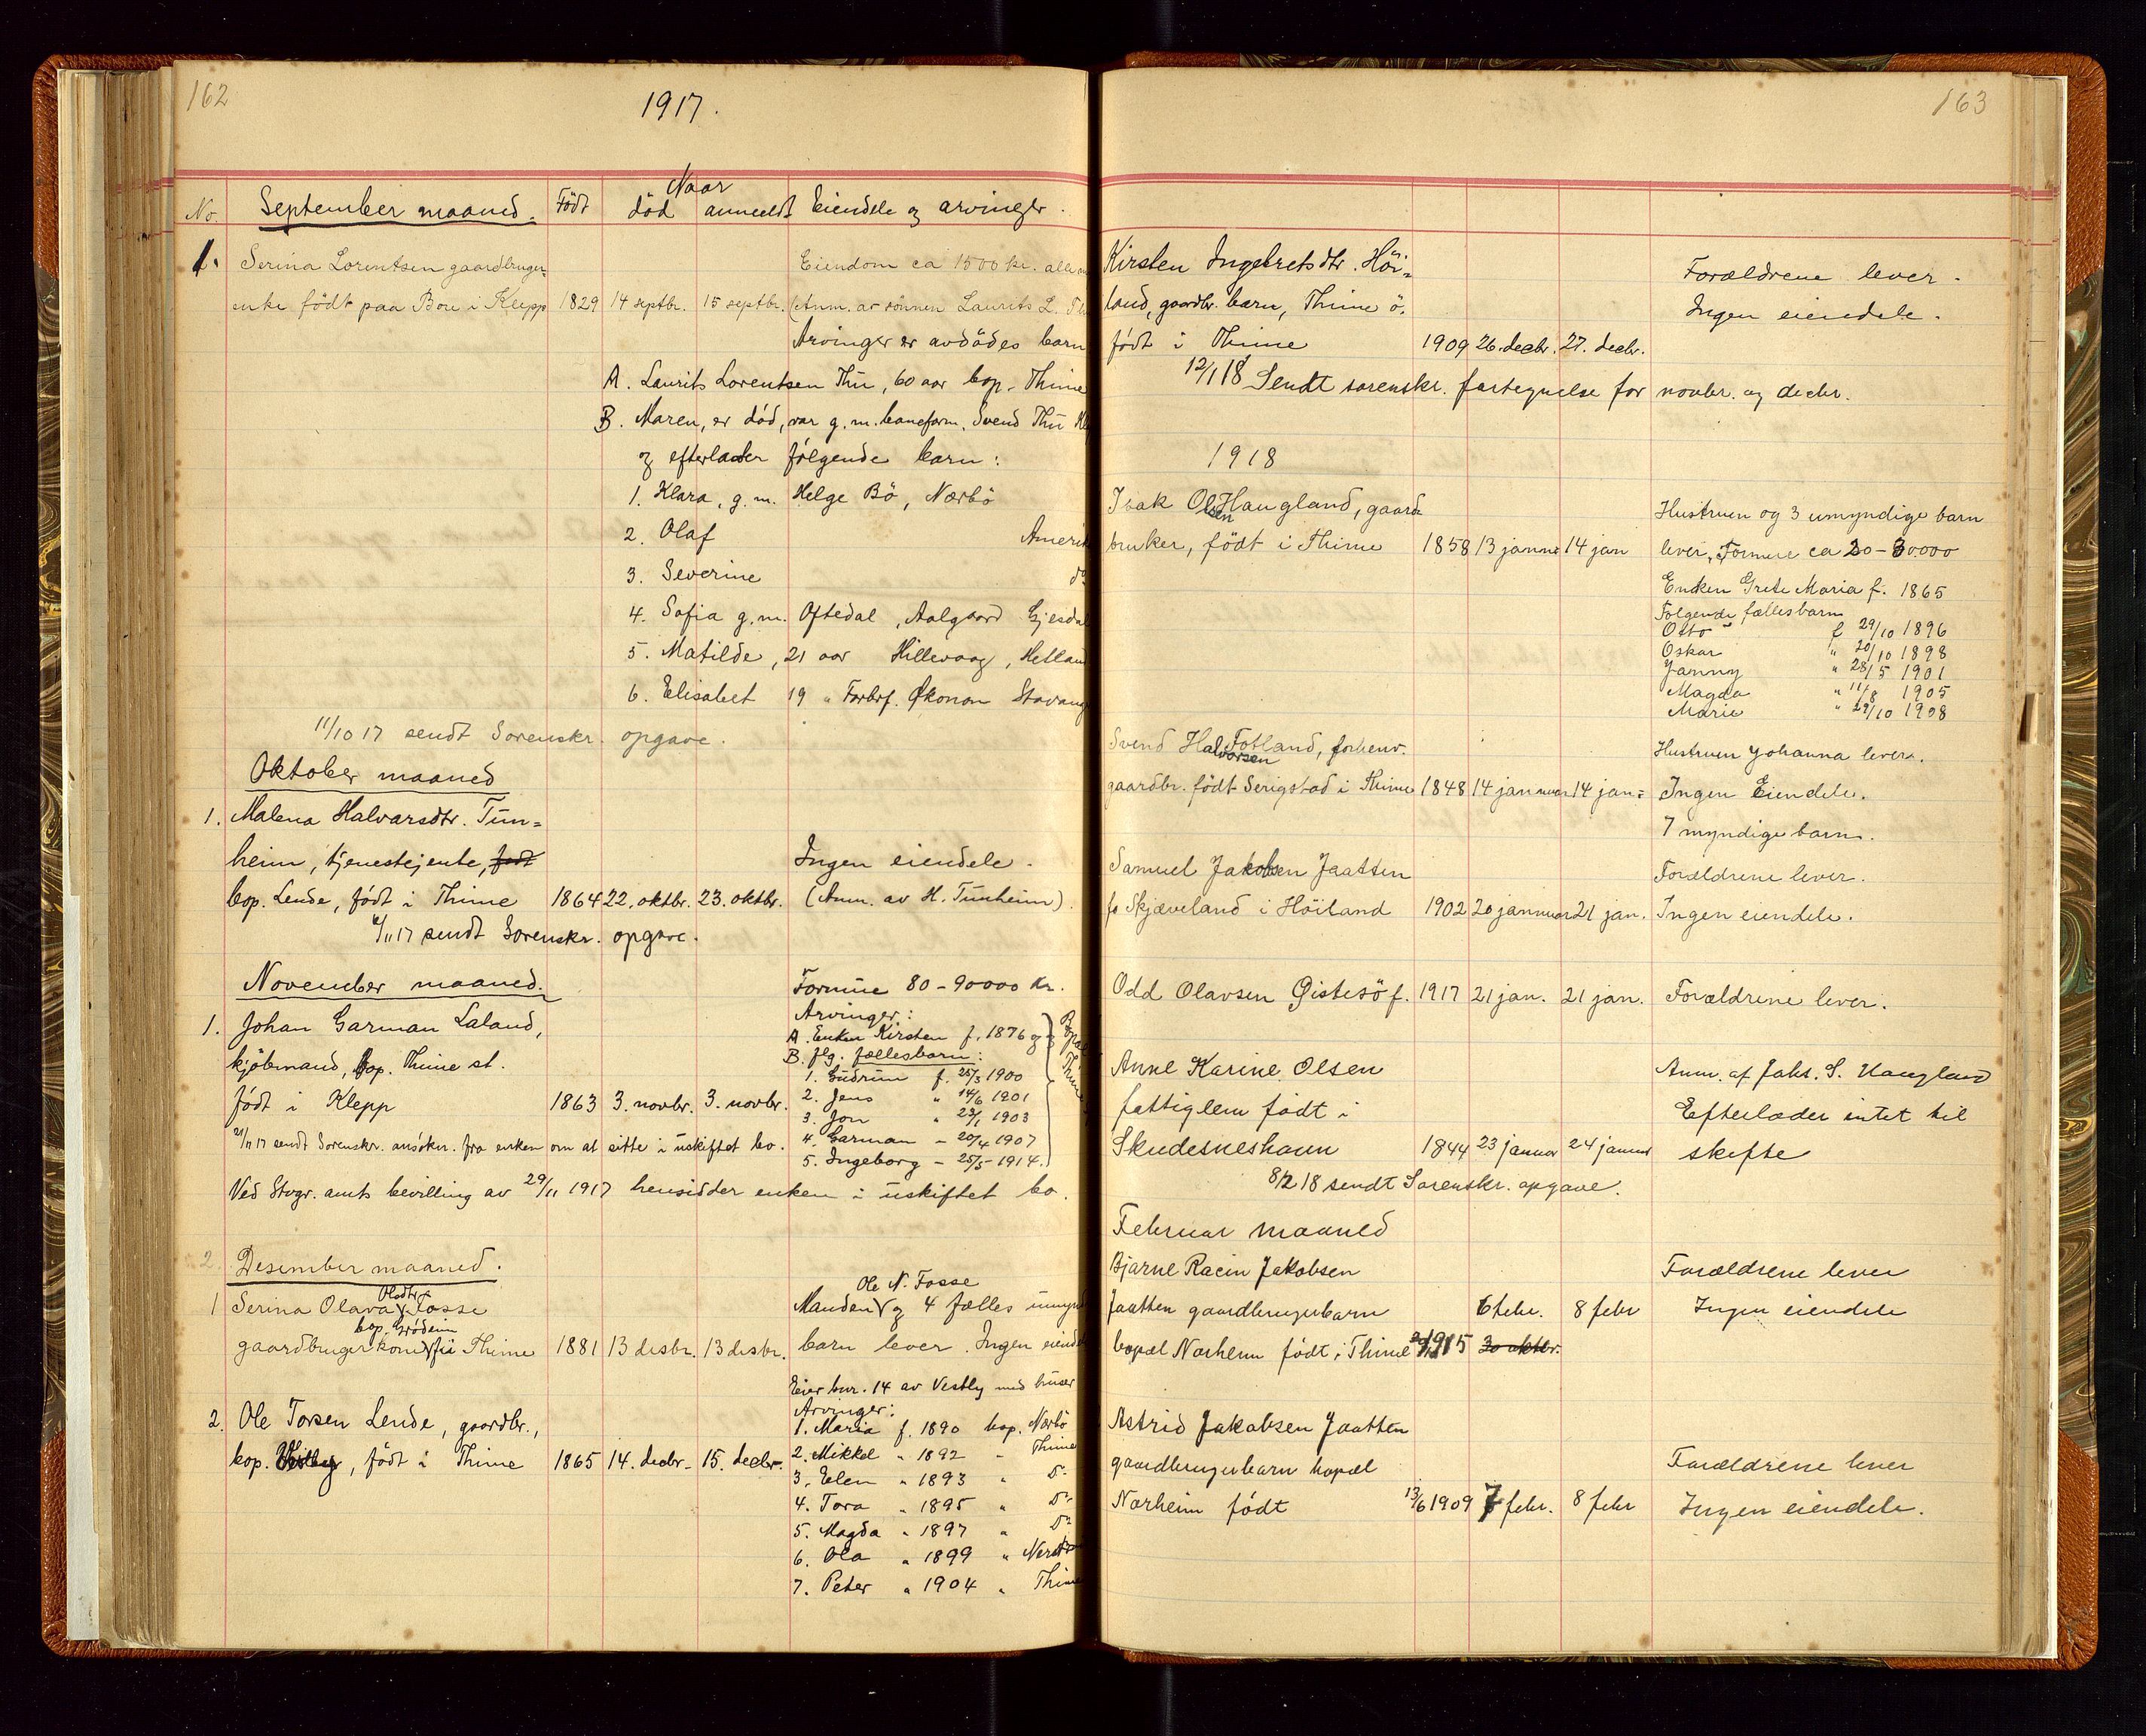 162
1917.
No. September maaned. Født Naar død anmeldt Eiendele og arvinger.
1. Serina Lorentsen gaardbruger-
enke født paa Bore i Klepp 1829 14 septbr. 15 septbr.
Eiendom ca 1500 kr.
(Anm. av sønnen Laurits L.
Arvinger er avdødes barn
A. Laurits Lorentsen Thu, 60 aar bop. Thime
B. Maren, er død, var g. m. baneform. Svend Thu
og efterlader følgende barn:
1. Klara, g. m. Helge Bö, Nærbö
2. Olaf
3. Severine
4. Sofia g. m. Oftedal, Aalgaard
5. Matilde, 21 aar Hillevaag,
6. Elisabet 19 " Forbrf. Økonom
11/10 17 sendt Sorenskr. opgave.
Oktober maaned
1. Malena Halvarsdtr. Tun=
heim, tjenestejente, født
bop. Lende, født i Thime 1864 22. oktbr. 23. oktbr.
Ingen eiendele.
(Anm. av H. Tunheim).
6/11 17 sendt Sorenskr. opgave.
November maaned.
1. Johan Garman Laland,
kjöbmand, bop. Thime st.
født i Klepp 1863 3. novbr. 3. novbr.
Formue 80-90000 kr.
Arvinger:
A. Enken Kirsten f. 1876 og
B. flg. fællesbarn:
1. Gudrun f. 25/3 1900
2. Jens " 14/6 1901
3. Jon " 23/1 1903
4. Garman - 20/4 1907
5. Ingeborg - 25/5 1914.
21/11 17 sendt Sorenskr. ansøkn. fra enken om at sitte i uskiftet bo.
Ved Stvgr. amts bevilling av 29/11 1917 hensidder enken i uskiftet bo.
2. Desember maaned.
1 Serina Olava Olsdtr. Fosse
gaardbrugerkone bop. Grödeim Thime 1881 13 desbr. 13 desbr.
Manden Ole N. Fosse og 4 fælles
barn lever. Ingen
2. Ole Torsen Lende, gaardbr.,
bop. , født i Thime 1865 14. decbr. 15. decbr.
Eier bnr. 14 av Vestly med huser
Arvinger:
1. Maria f. 1890 bop. Nærbö
2. Mikkel " 1892 - Thime
3. Elen " 1893 " Do
4. Tora " 1895 " Do
5. Magda " 1897 " Do
6. Ola " 1899 "
7. Peter " 1904 " Thime
163
Kirsten Ingebretsdtr. Höi=
land, gaardbr. barn, Thime ö.
født i Thime 1909 26. decbr. 27. decbr.
Forældrene lever.
Ingen eiendele.
12/1 18 Sendt sorenskr. fortegnelse for novbr. og decbr.
1918
Isak Olsen Haugland, gaard-
bruker, født i Thime 1858 13 januar 14 jan
Hustruen og 3 umyndige barn
lever, Formue ca 20-30000
Enken Grete Maria f. 1865
Følgende fællesbarn
Otto f 29/10 1896
Oskar " 20/10 1898
Janny " 28/5 1901
Magda " 11/8 1905
Marie " 29/10 1908
Svend Halvorsen Fotland, forhenv.
gaardbr. født Serigstad i Thime 1848 14 januar 14 jan-
Hustruen Johanna lever.
Ingen Eiendele.
7 myndige barn.
Samuel Jakobsen Jaatten
fo Skjæveland i Höiland 1902 20 januar 21 jan.
Forældrene lever.
Ingen eiendele.
Odd Olavsen Gistesö f. 1917 21 jan. 21 jan. Forældrene lever.
Anne Karine Olsen
fattiglem født i
Skudesneshavn 1844 23 januar 24 januar
Anm. af Jahs. S. Haugland
Efterlader intet til
skifte
8/2 18 sendt Sorenskr. opgave.
Februar maaned
Bjarne Racin Jakobsen
Jaatten gaardbrugerbarn 6 febr. 8 febr
bopæl Norheim født i Thime 1915 30 oktbr.
Forældrene lever
Ingen eiendele
Astrid Jakobsen Jaatten
gaardbrugerbarn bopæl
Norheim født 13/6 1909 7 febr. 8 febr
Forældrene lever
Ingen eiendele.